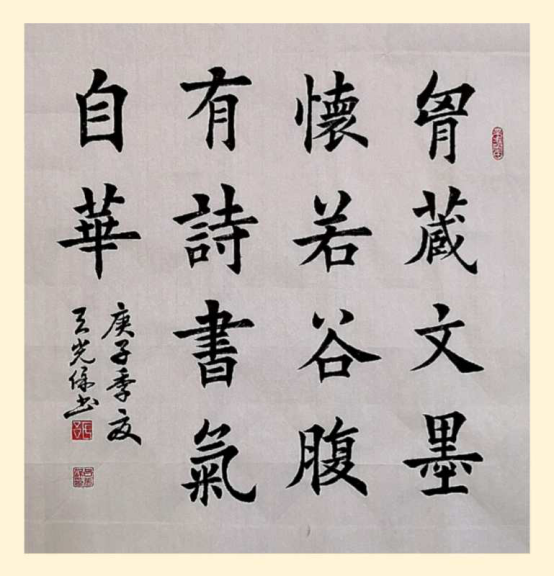 胷藏文墨
懷若谷腹
有詩書氣
自華
庚子季夏
王光保書